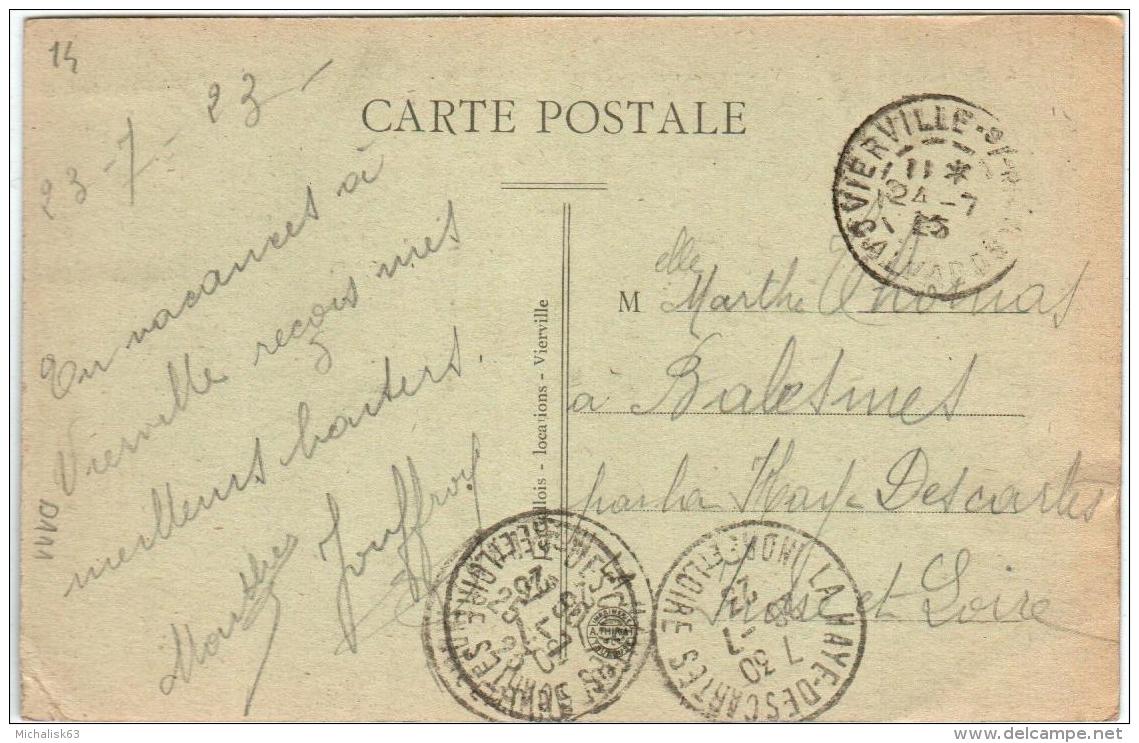 14
23-7-23-
CARTE POSTALE
En vacances à
Vierville reçois mes
meilleurs baisers.
Jouffroy
D1411
llois - locations - Vierville
VIERVILLE-S/
11 *
24-7
23
CALVADOS
M elle Marthe Thomas
à Balesmes
par la Haye-Descartes
Indre et Loire
LA HAYE-DESCARTES
INDRE-ET-LOIRE
7 30
-7
23
Michalisk63
delcampe.net